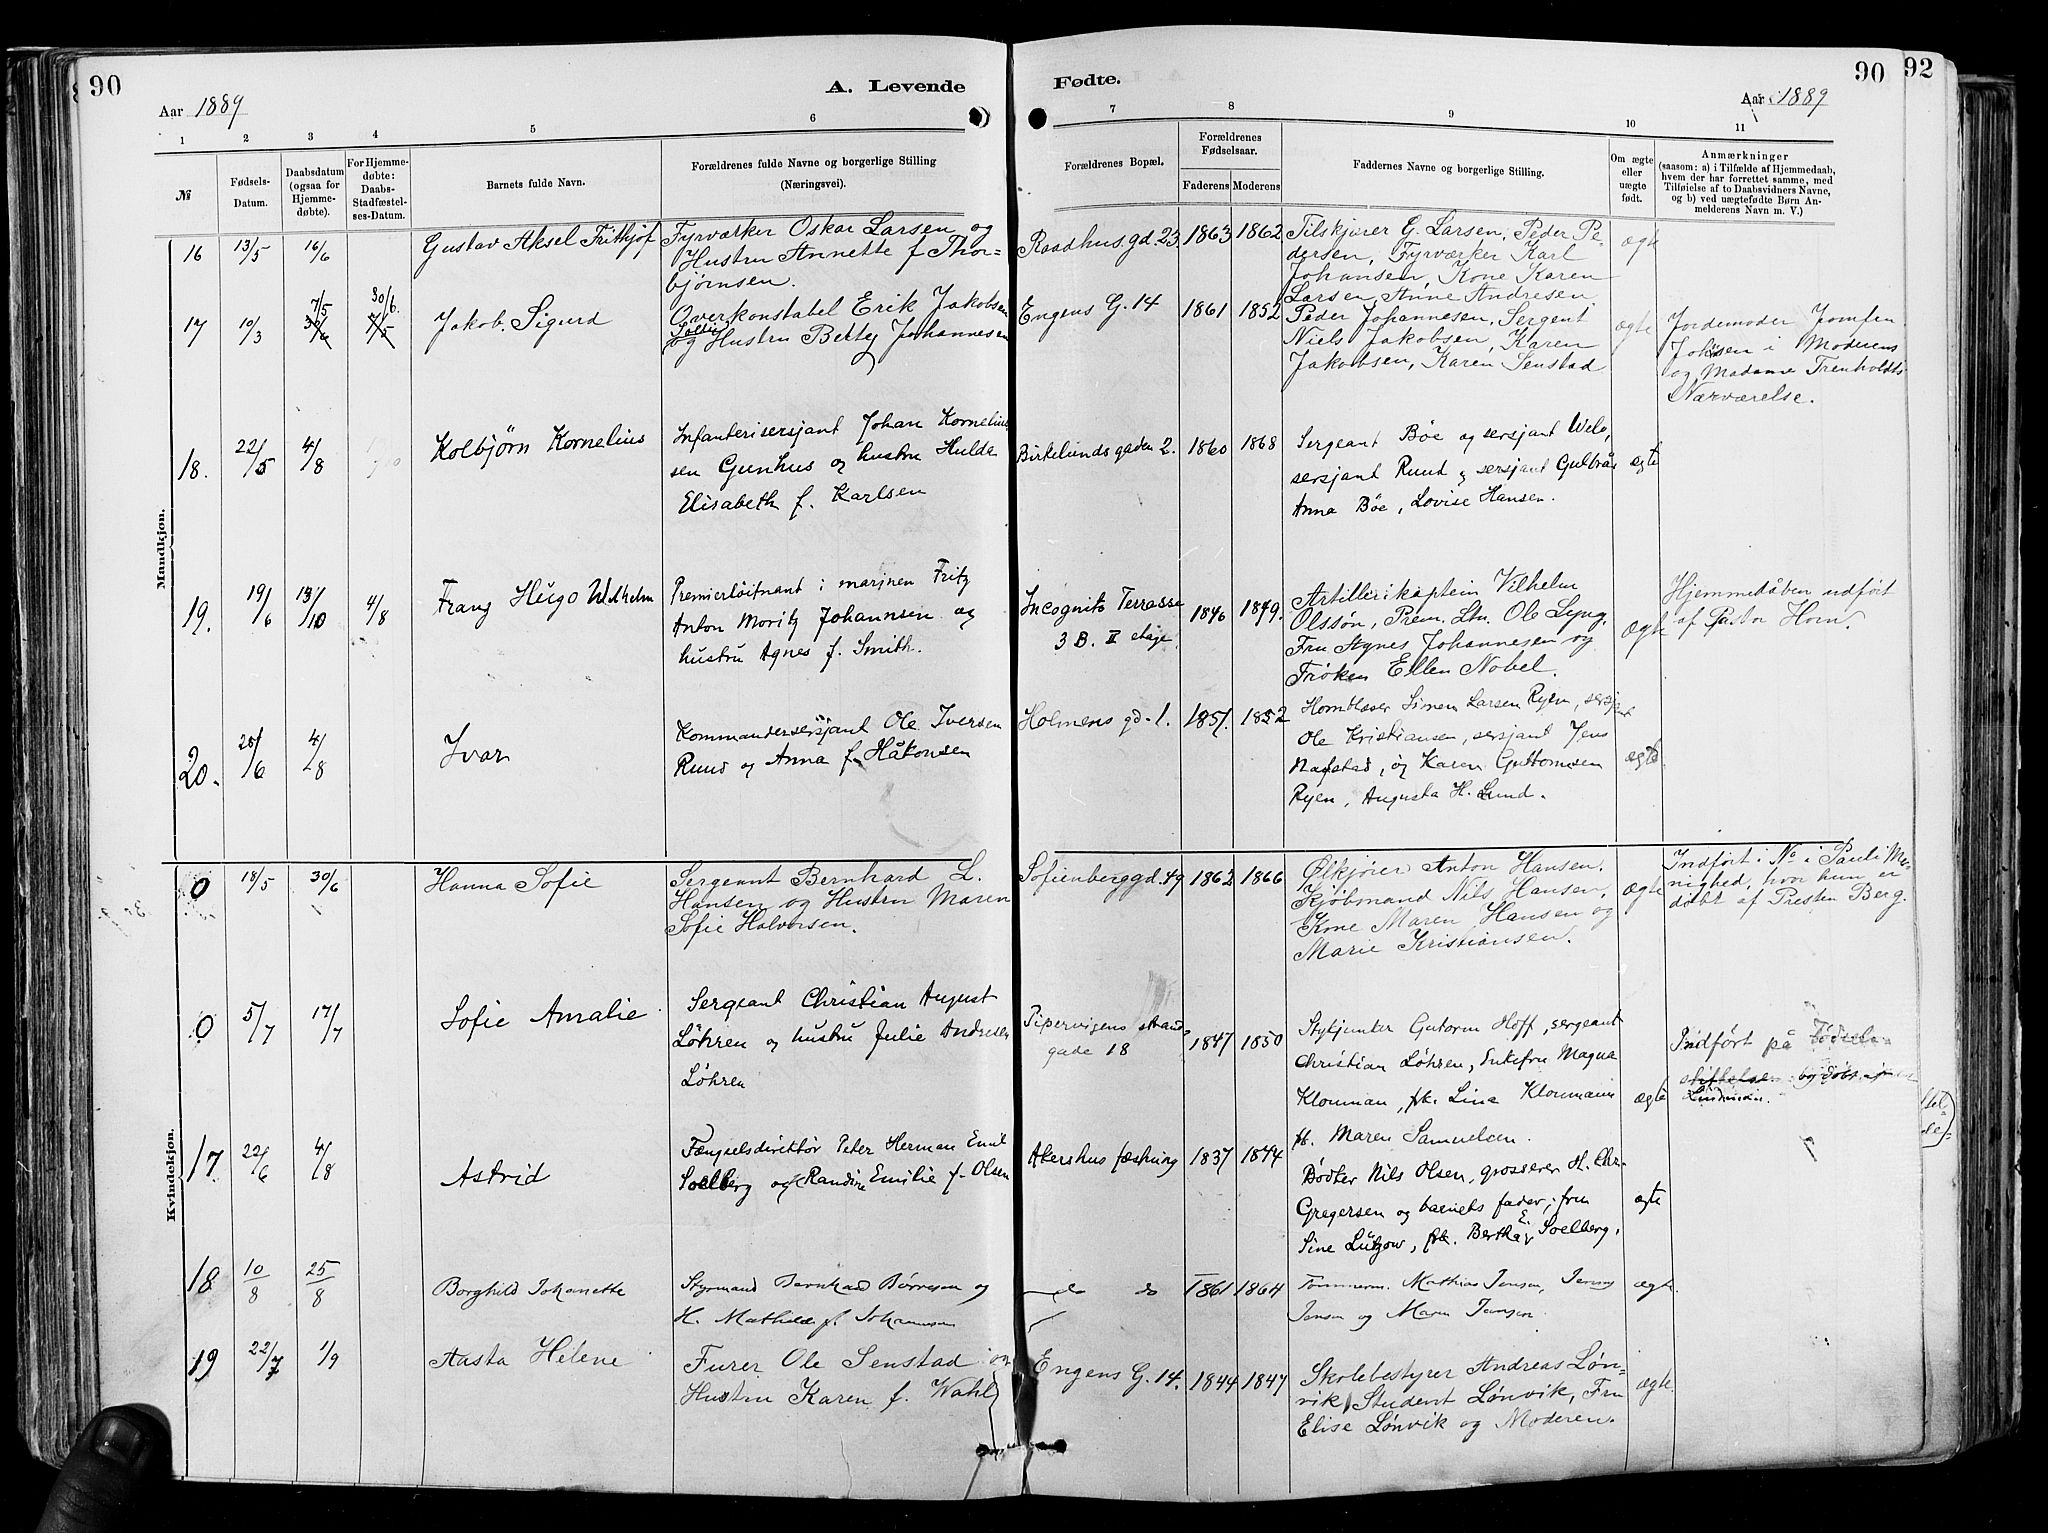 90
A. Levende
Fødte.
90
92
Aar 1889
Aar 1889
1 2 3 4 5 6 7 8 9 10 11
№
Fødsels-
Datum.
Daabsdatum
(ogsaa for
Hjemme-
døbte).
For Hjemme-
døbte:
Daabs-
Stadfæstel-
ses-Datum.
Barnets fulde Navn.
Forældrenes fulde Navne og borgerlige Stilling
(Næringsvei).
Forældrenes Bopæl.
Forældrenes
Fødselsaar.
Faderens Moderens
Faddernes Navne og borgerlige Stilling.
Om ægte
eller
uægte
født.
Anmærkninger
(saasom: a) i Tilfælde af Hjemmedaab,
hvem der har forrettet samme, med
Tilføielse af to Daabsvidners Navne,
og b) ved uægtefødte Børn An-
melderens Navn m. V.)
Mandkjøn.
16 13/5 16/6
Gustav Aksel Frithjof
Fyrværker Oskar Larsen og
Hustru Annette f. Thor-
bjørnsen.
Raadhus.gd. 23. 1863 1862
Tilskjærer G. Larsen, Peder Pe-
dersen, Fyrværker Karl
Johansen, Kone Karen
Larsen, Anne Andresen
ægte
17 10/3 7/5 30/6 30/6. 7/5
Jakob Sigurd
Overkonstabel Erik Jakobsen
og Hustru Betty Johannesen
Engens G. 14 1861 1852
Peder Johannesen, Sergent
Niels Jakobsen, Karen
Jakobsen, Karen Senstad
ægte
Jordemoder Jomfru
Johnsen i Moderens
og Madame Trenholdts
Nærværelse.
18. 22/5 4/8
Kolbjørn Kornelius
Infanterisersjant Johan Kornelius-
sen Gunhus og hustru Hulda
Elisabeth f. Karlsen
Birkelunds gaden 2. 1860 1868
Sergeant Bøe og sersjant Welo,
sersjant Ruud og sersjant Gulbrås
Anna Bøe, Lovise Hansen.
ægte
19. 19/6 13/10 4/8
Franz Hugo Wilhelm
Premierløitnant i marinen Fritz
Anton Moritz Johannsen og
hustru Agnes f. Smith.
Incognito Terrasse
3 B. II etage 1846 1849.
Artillerikaptein Vilhelm
Olssøn, Prem. Ltn. Ole Lyng,
Fru Agnes Johannesen og
Frøken Ellen Nobel.
ægte
Hjemmedåben udført
af Pastor Horn.
20. 25/6 4/8
Ivar
Kommandersersjant Ole Iversen
Ruud og Anna f. Håkonsen
Holmens gd. 1. 1851. 1852
Hornblæser Simen Larsen Ryen, sersjant
Ole Kristiansen, sersjant Jens
Nafstad, og Karen Guttormsen
Ryen, Augusta H. Lund.
ægte
Kvindekjøn.
0 18/5 30/6
Hanna Sofie
Sergeant Bernhard L.
Hansen og Hustru Maren
Sofie Halvorsen.
Sofienberggd. 49 1862 1866
Ølkjører Anton Hansen.
Kjøbmand Nils Hansen,
Kone Maren Hansen og
Marie Kristiansen.
ægte
Indført i No i Pauli Me-
nighed, hvor hun er
døbt af Presten Berg.
0 5/7 17/7
Sofie Amalie
Sergeant Christian August
Løhren og hustru Julie Andresen
Løhren
Pipervigens strand-
gade 18 1847 1850
Stykjunker Gutorm Hoff, sergeant
Christian Løhren, Enkefru Magna
Klouman, frk. Lina Kloumann
frk. Maren Samuelsen.
ægte
Indført på Fødsels-
stiftelsen
Lindman.
17. 22/6 4/8
Astrid
Fængselsdirektør Peter Herman Emil
Soelberg og Randine Emilie f. Olsen
Akershus fæstning 1837 1844
Bødker Nils Olsen, grosserer H. Chr.
Gregersen og barnets fader, fru
Sine Lützow, frk. Bertha E. Soelberg.
ægte
18 10/8 25/8
Borghild Johanette
Styrmand Bernhard Børresen og
H. Mathilde f. Johannesen
do 1861 1864
Tømmerm. Mathias Jensen, Jenny
Jensen og Maren Jensen.
ægte.
19 22/7 1/9
Aasta Helene
Furer Ole Senstad og
Hustru Karen f. Wahl
Engens G. 14. 1844 1847
Skolebestyrer Andreas Løn-
vik, Student Lønvik, Fru
Elise Lønvik og Moderen.
ægte